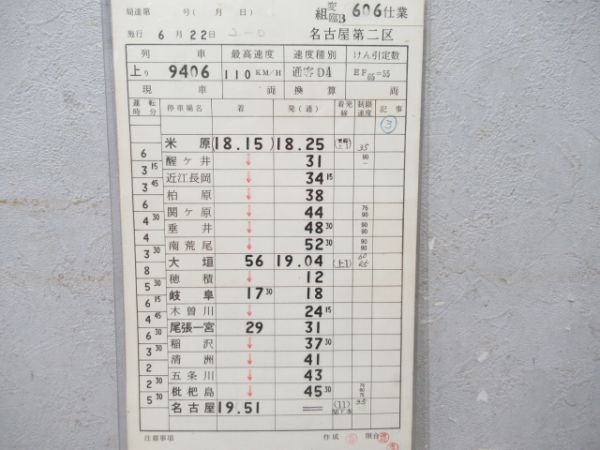 局達第 号( 月 日) 組 変臨B 606仕業
施行 6月22日 名古屋第二区
列車 最高速度 速度種別 けん引定数
上り 9406 110 KM/H 通客D4 EF65=55
現車 両 換算 両
運転時分 停車場名 着 発(通) 着発線 制限速度 記事
③
米原 (18.15) 18.25 35
6 醒ヶ井 ↓ 31 90
3 15 近江長岡 ↓ 34 15
3 45 柏原 ↓ 38
6 関ヶ原 ↓ 44 75 90
4 30 垂井 ↓ 48 30 90 90
4 南荒尾 ↓ 52 30 90 90
3 30 大垣 56 19.04 (上1) 60 65
8 穂積 ↓ 12
5 30 岐阜 17 30 18
6 15 木曽川 ↓ 24 15
4 45 尾張一宮 29 31
6 30 稲沢 ↓ 37 30
3 30 清洲 ↓ 41
2 五条川 ↓ 43
2 30 枇杷島 ↓ 45 30
5 30 名古屋 19.51 = (11) 35
注意事項 作成 照合